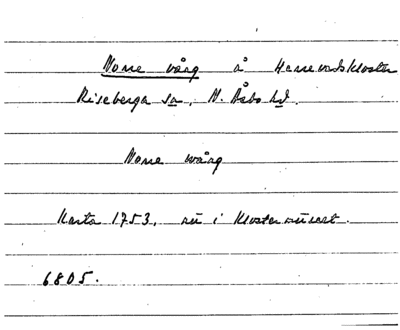 Norre vång å Herrevadskloster
Riseberga sn, N. Åsbo hd.
Norre wång
Karta 1753, nu i Klostermuseet.
6805.